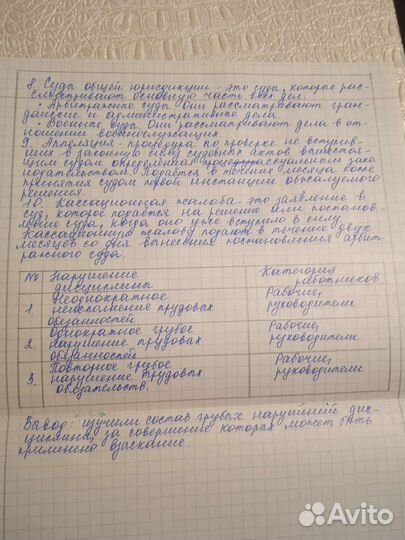 8. Суды общей юрисдикции - это суды, которые рас-
сматривают основную часть всех дел.
• Арбитражные суды. Они рассматривают граж-
данские и административные дела
• Военные суды. Они рассматривают дела в от-
ношении военнослужащих.
9. Апелляция - процедура по проверке не вступив-
ших в законную силу судебных актов вышестоя-
щим судом определённая процессуальным зако
нодательством. Подаётся в течение месяца после
принятия судом первой инстанции обжалуемого
решения.
10. Кассационная жалоба - это заявление в
суд, которое подаётся на решение или постанов-
ление суда, когда оно уже вступило в силу.
Кассационную жалобу подают в течение двух
месяцев со дня вынесения постановления арбит-
ражного суда.
№ Нарушение дисциплины Категория работников
1. Неоднократное неисполнение трудовых обязанностей Рабочие, руководители
2. Однократное грубое нарушение трудовых обязанностей Рабочие, руководители
3. Повторное грубое нарушение трудовых обязательств. Рабочие, руководители
Вывод: изучили состав грубых нарушений дис-
циплины, за совершение которых может быть
применено взыскание.
Avito